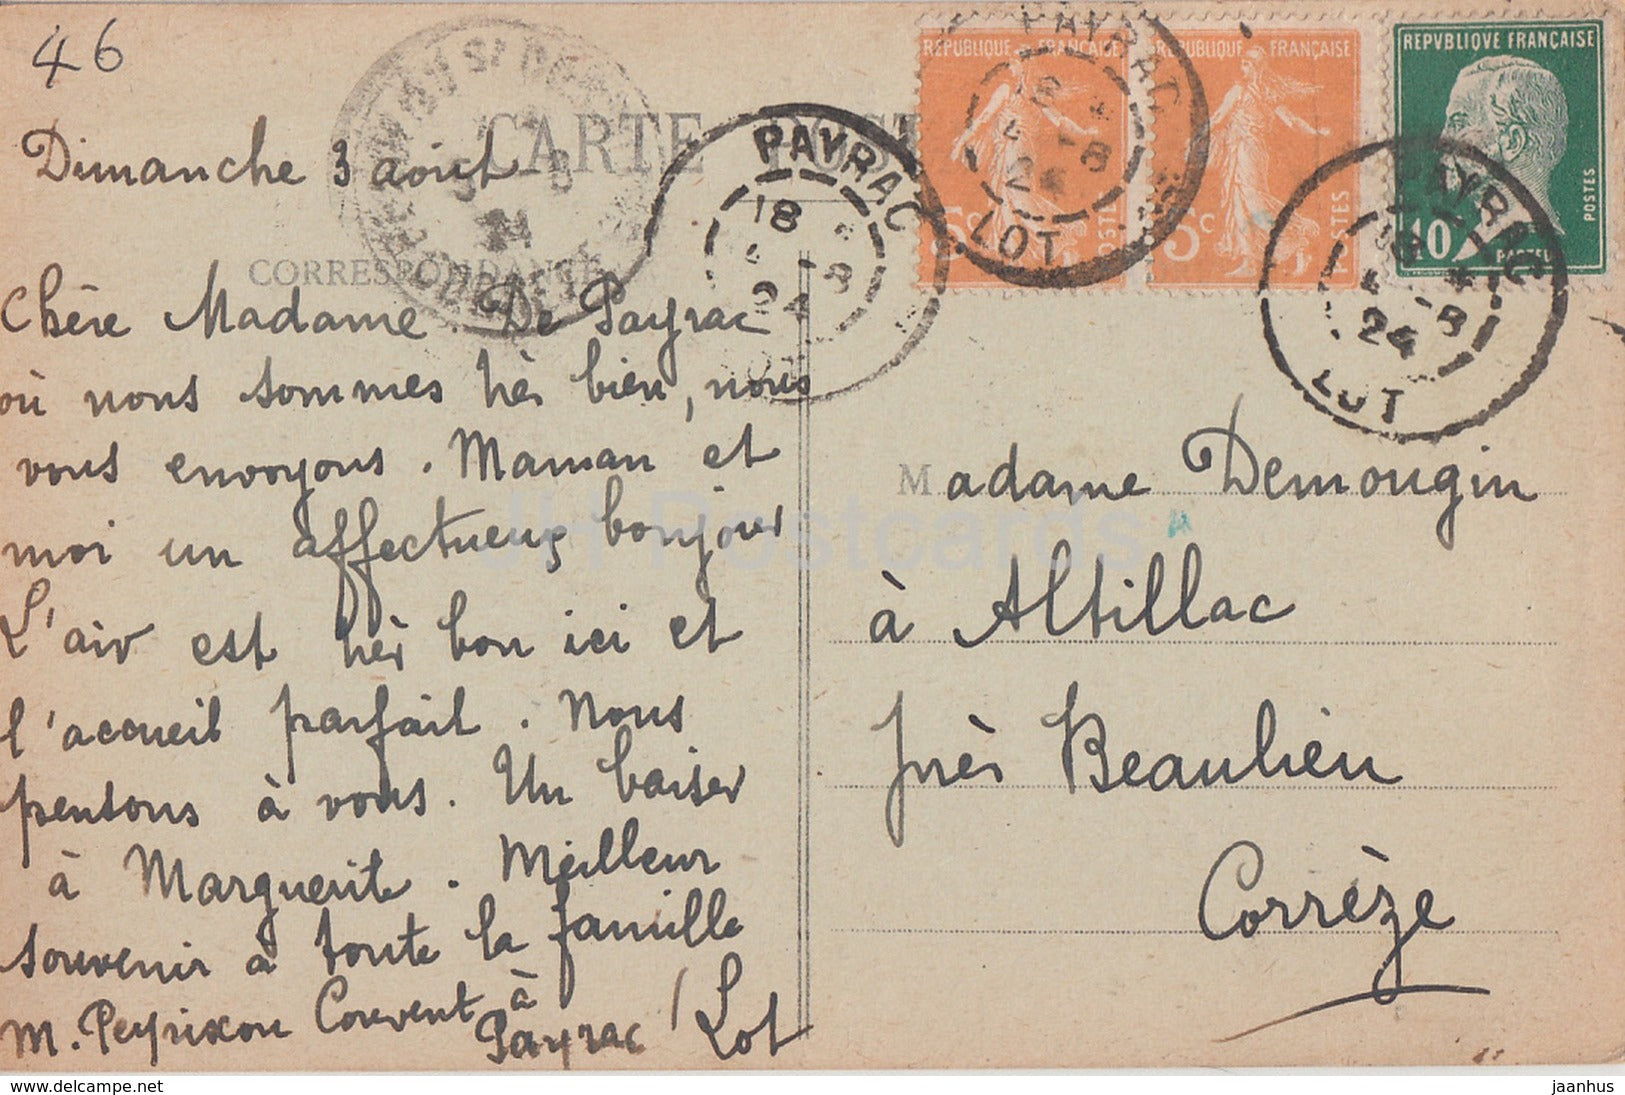 46
CARTE POST
CORRESPONDANCE
Dimanche 3 août
Chère Madame. De Payrac
où nous sommes très bien, nous
vous envoyons. Maman et
moi un affectueux bonjour
L'air est très bon ici et
l'accueil parfait. Nous
pensons à vous. Un baiser
à Marguerite. Meilleur
souvenir à toute la famille
M. Peyrixon Couvent à
Payrac / Lot
REPUBLIQUE FRANÇAISE
5c
POSTES
REPUBLIQUE FRANÇAISE
5c
POSTES
REPVBLIQVE FRANÇAISE
10
POSTES
PASTEUR
PAYRAC
18
-8
24
LOT
PAYRAC
18
-8
24
LOT
PAYRAC
18
-8
24
LOT
Madame Demougin
à Altillac
près Beaulieu
Corrèze
JH Postcards
Click to view image full size
jaanhus